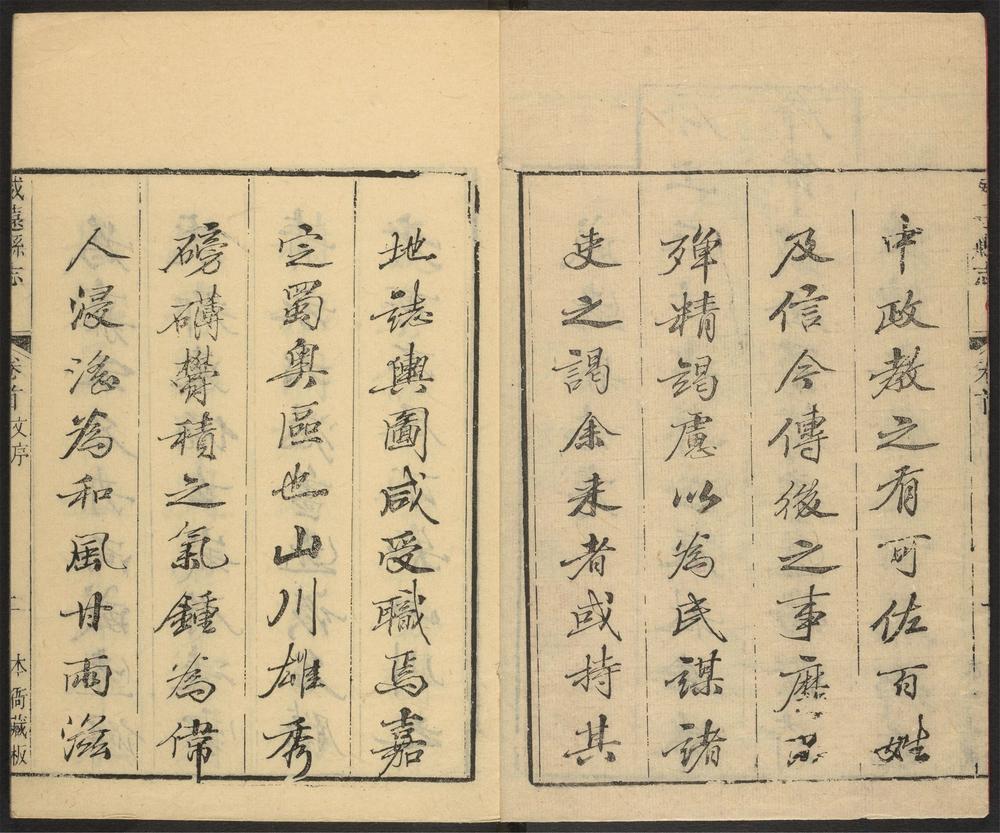 中政教之有可佐百姓
及信今傳後之事靡不
殫精竭慮以為民謀諸
吏之謁余来者或持其
地誌輿圖咸受職焉嘉
定蜀奥區也山川雄秀
磅礴欝積之氣鍾為偉
人浸滛為和風甘雨滋
威遠縣志
卷首文序
二
本衙藏板